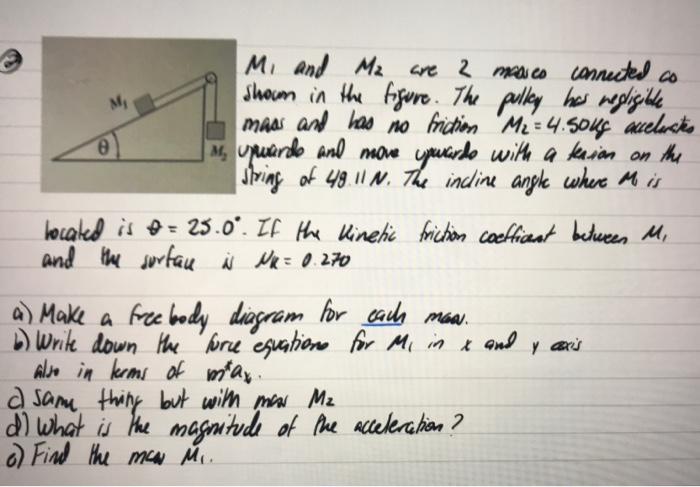 M1 and M2 are 2 masses connected as
shown in the figure. The pulley has negligible
mass and has no friction M2 = 4.50kg accelerates
upwards and move upwards with a tension on the
string of 49.11 N. The incline angle where M is
located is θ = 25.0°. If the kinetic friction coefficient between M1
and the surface is Nk = 0.270
M1
θ
M2
a) Make a free body diagram for each mass.
b) Write down the force equations for M1 in x and y axis
also in terms of m*ax.
c) Same thing but with mass M2
d) What is the magnitude of the acceleration?
e) Find the mass M1.